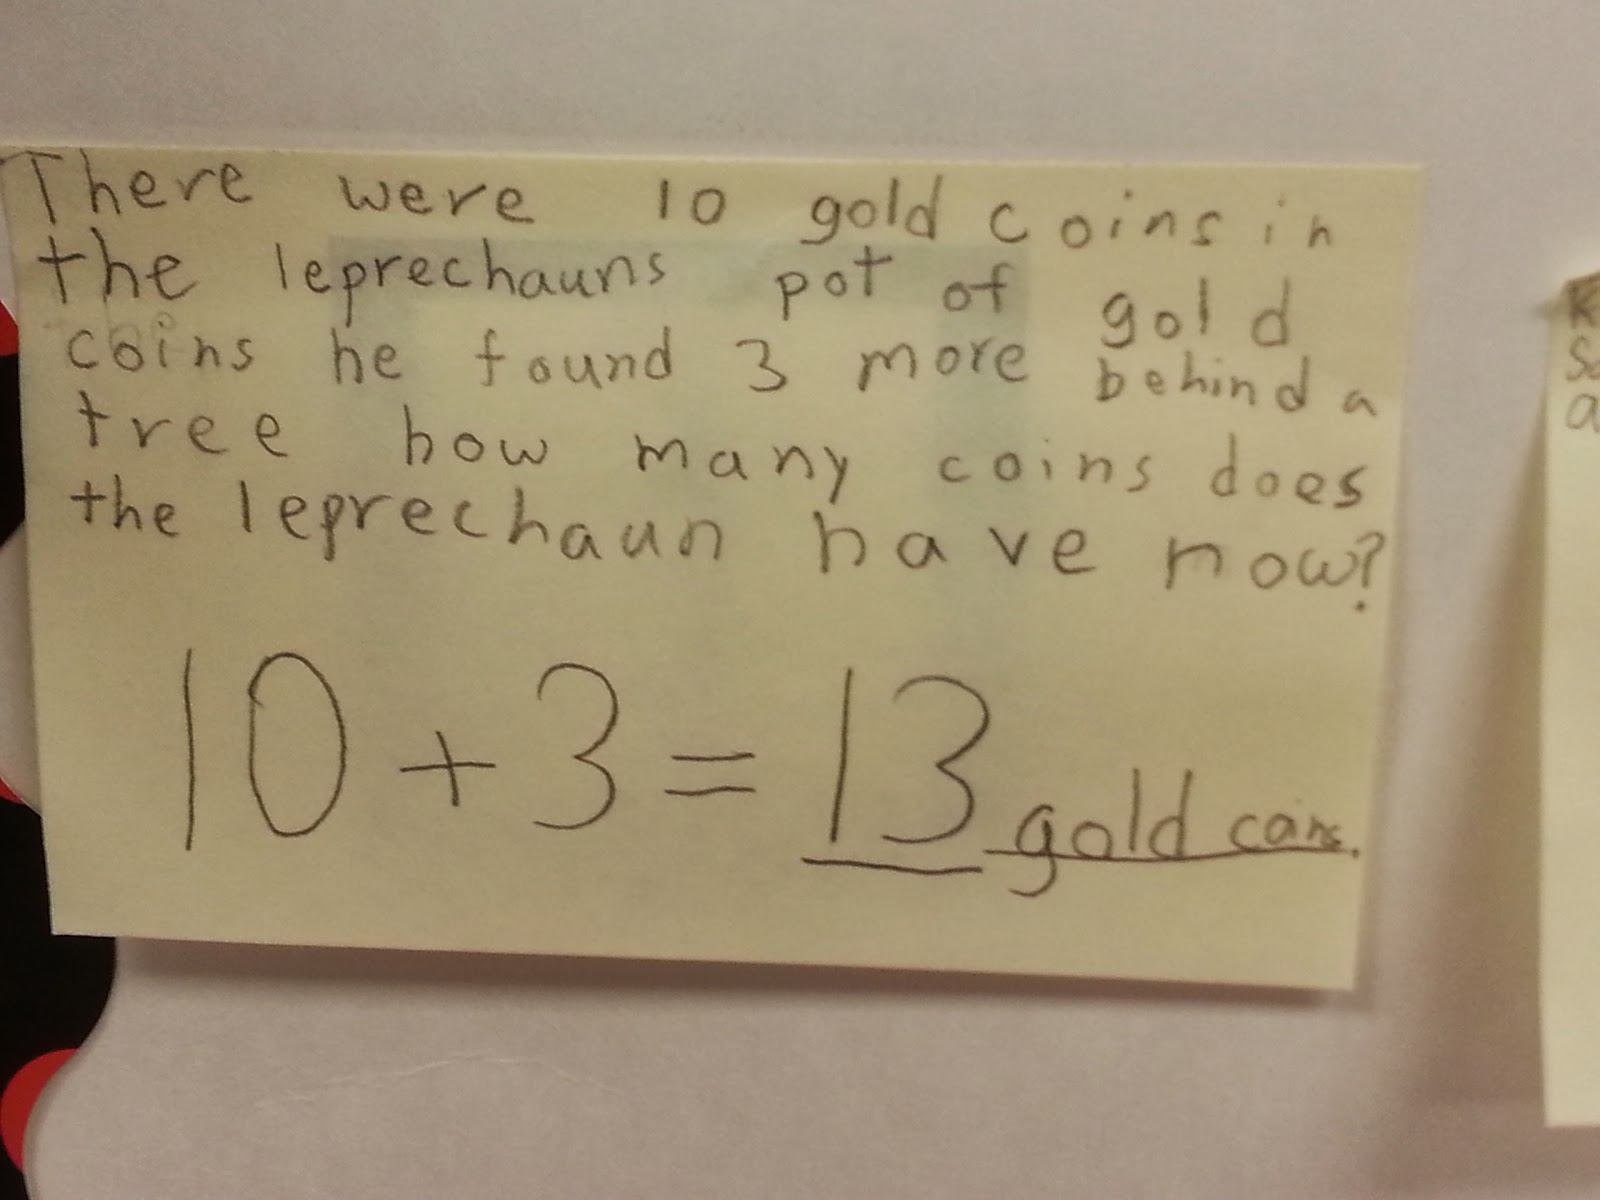 There were 10 gold coins in
the leprechauns pot of gold
coins he found 3 more behind a
tree how many coins does
the leprechaun have now?
10 + 3 = 13 gold coins.